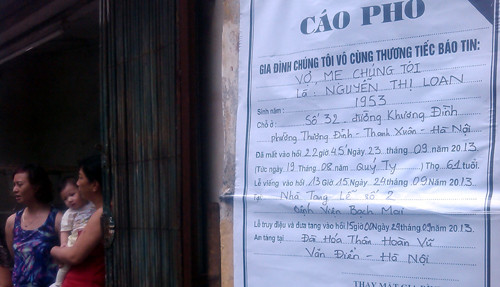 CÁO PHÓ
GIA ĐÌNH CHÚNG TÔI VÔ CÙNG THƯƠNG TIẾC BÁO TIN:
VỢ, MẸ CHÚNG TÔI
Là: NGUYỄN THỊ LOAN
Sinh năm: 1953
Chỗ ở: Số 32 - đường Khương Đình
phường Thượng Đình - Thanh Xuân - Hà Nội
Đã mất vào hồi 22 giờ 45' Ngày 23 tháng 09 năm 2013
(Tức ngày 19 Tháng 08 năm Quý Tỵ) Thọ 61 tuổi
Lễ viếng vào hồi 13 Giờ 15 Ngày 24 tháng 09 Năm 2013
Tại Nhà Tang Lễ số 2
Bệnh Viện Bạch Mai
Lễ truy điệu và đưa tang vào hồi 15 giờ 00 Ngày 24 tháng 09 năm 2013
An táng tại: Đài Hóa Thân Hoàn Vũ
Văn Điển - Hà Nội
THAY MẶT GIA